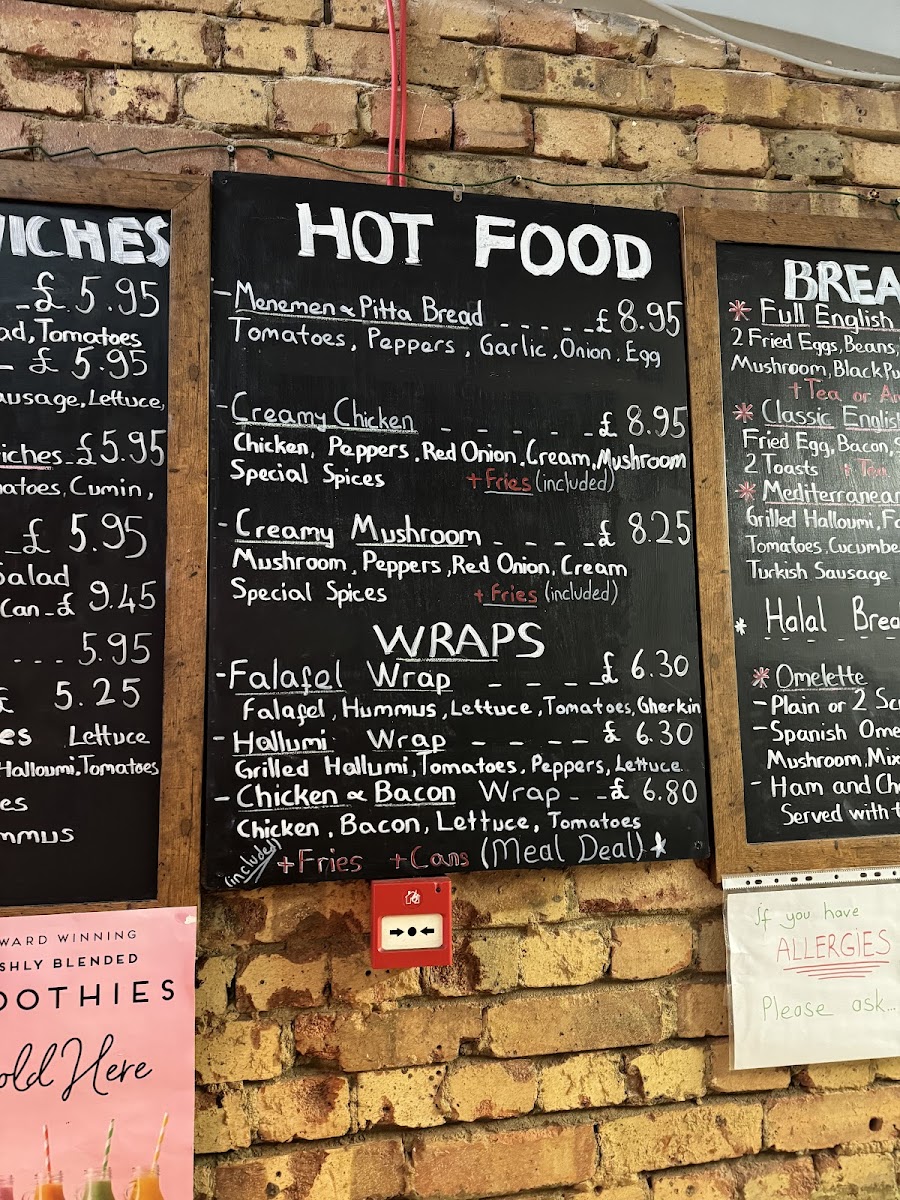 ICHES
-£ 5.95
ad, Tomatoes
- £ 5.95
ausage, Lettuce,
iches - £5.95
matoes, Cumin,
- £ 5.95
Salad
Can - £ 9.45
.... 5.95
£ 5.25
es Lettuce
Halloumi, Tomatoes
es
ummus
HOT FOOD
- Menemen & Pitta Bread - - - - - £ 8.95
Tomatoes, Peppers, Garlic, Onion, Egg
- Creamy Chicken - - - - - £ 8.95
Chicken, Peppers, Red Onion, Cream, Mushroom
Special Spices + Fries (included)
- Creamy Mushroom - - - - £ 8.25
Mushroom, Peppers, Red Onion, Cream
Special Spices + Fries (included)
WRAPS
- Falafel Wrap - - - - £ 6.30
Falafel, Hummus, Lettuce, Tomatoes, Gherkin
- Hallumi Wrap - - - - £ 6.30
Grilled Hallumi, Tomatoes, Peppers, Lettuce
- Chicken & Bacon Wrap - - £ 6.80
Chicken, Bacon, Lettuce, Tomatoes
(included) + Fries + Cans (Meal Deal) *
BREA
* Full English
2 Fried Eggs, Beans,
Mushroom, Black Pu
+ Tea or Am
* Classic English
Fried Egg, Bacon, S
2 Toasts + Tea
* Mediterranean
Grilled Halloumi, Fa
Tomatoes, Cucumbe
Turkish Sausage
* Halal Brea
* Omelette
- Plain or 2 Sc
- Spanish Ome
Mushroom, Mix
- Ham and Che
Served with t
WARD WINNING
SHLY BLENDED
OOTHIES
old Here
if you have
ALLERGIES
Please ask...